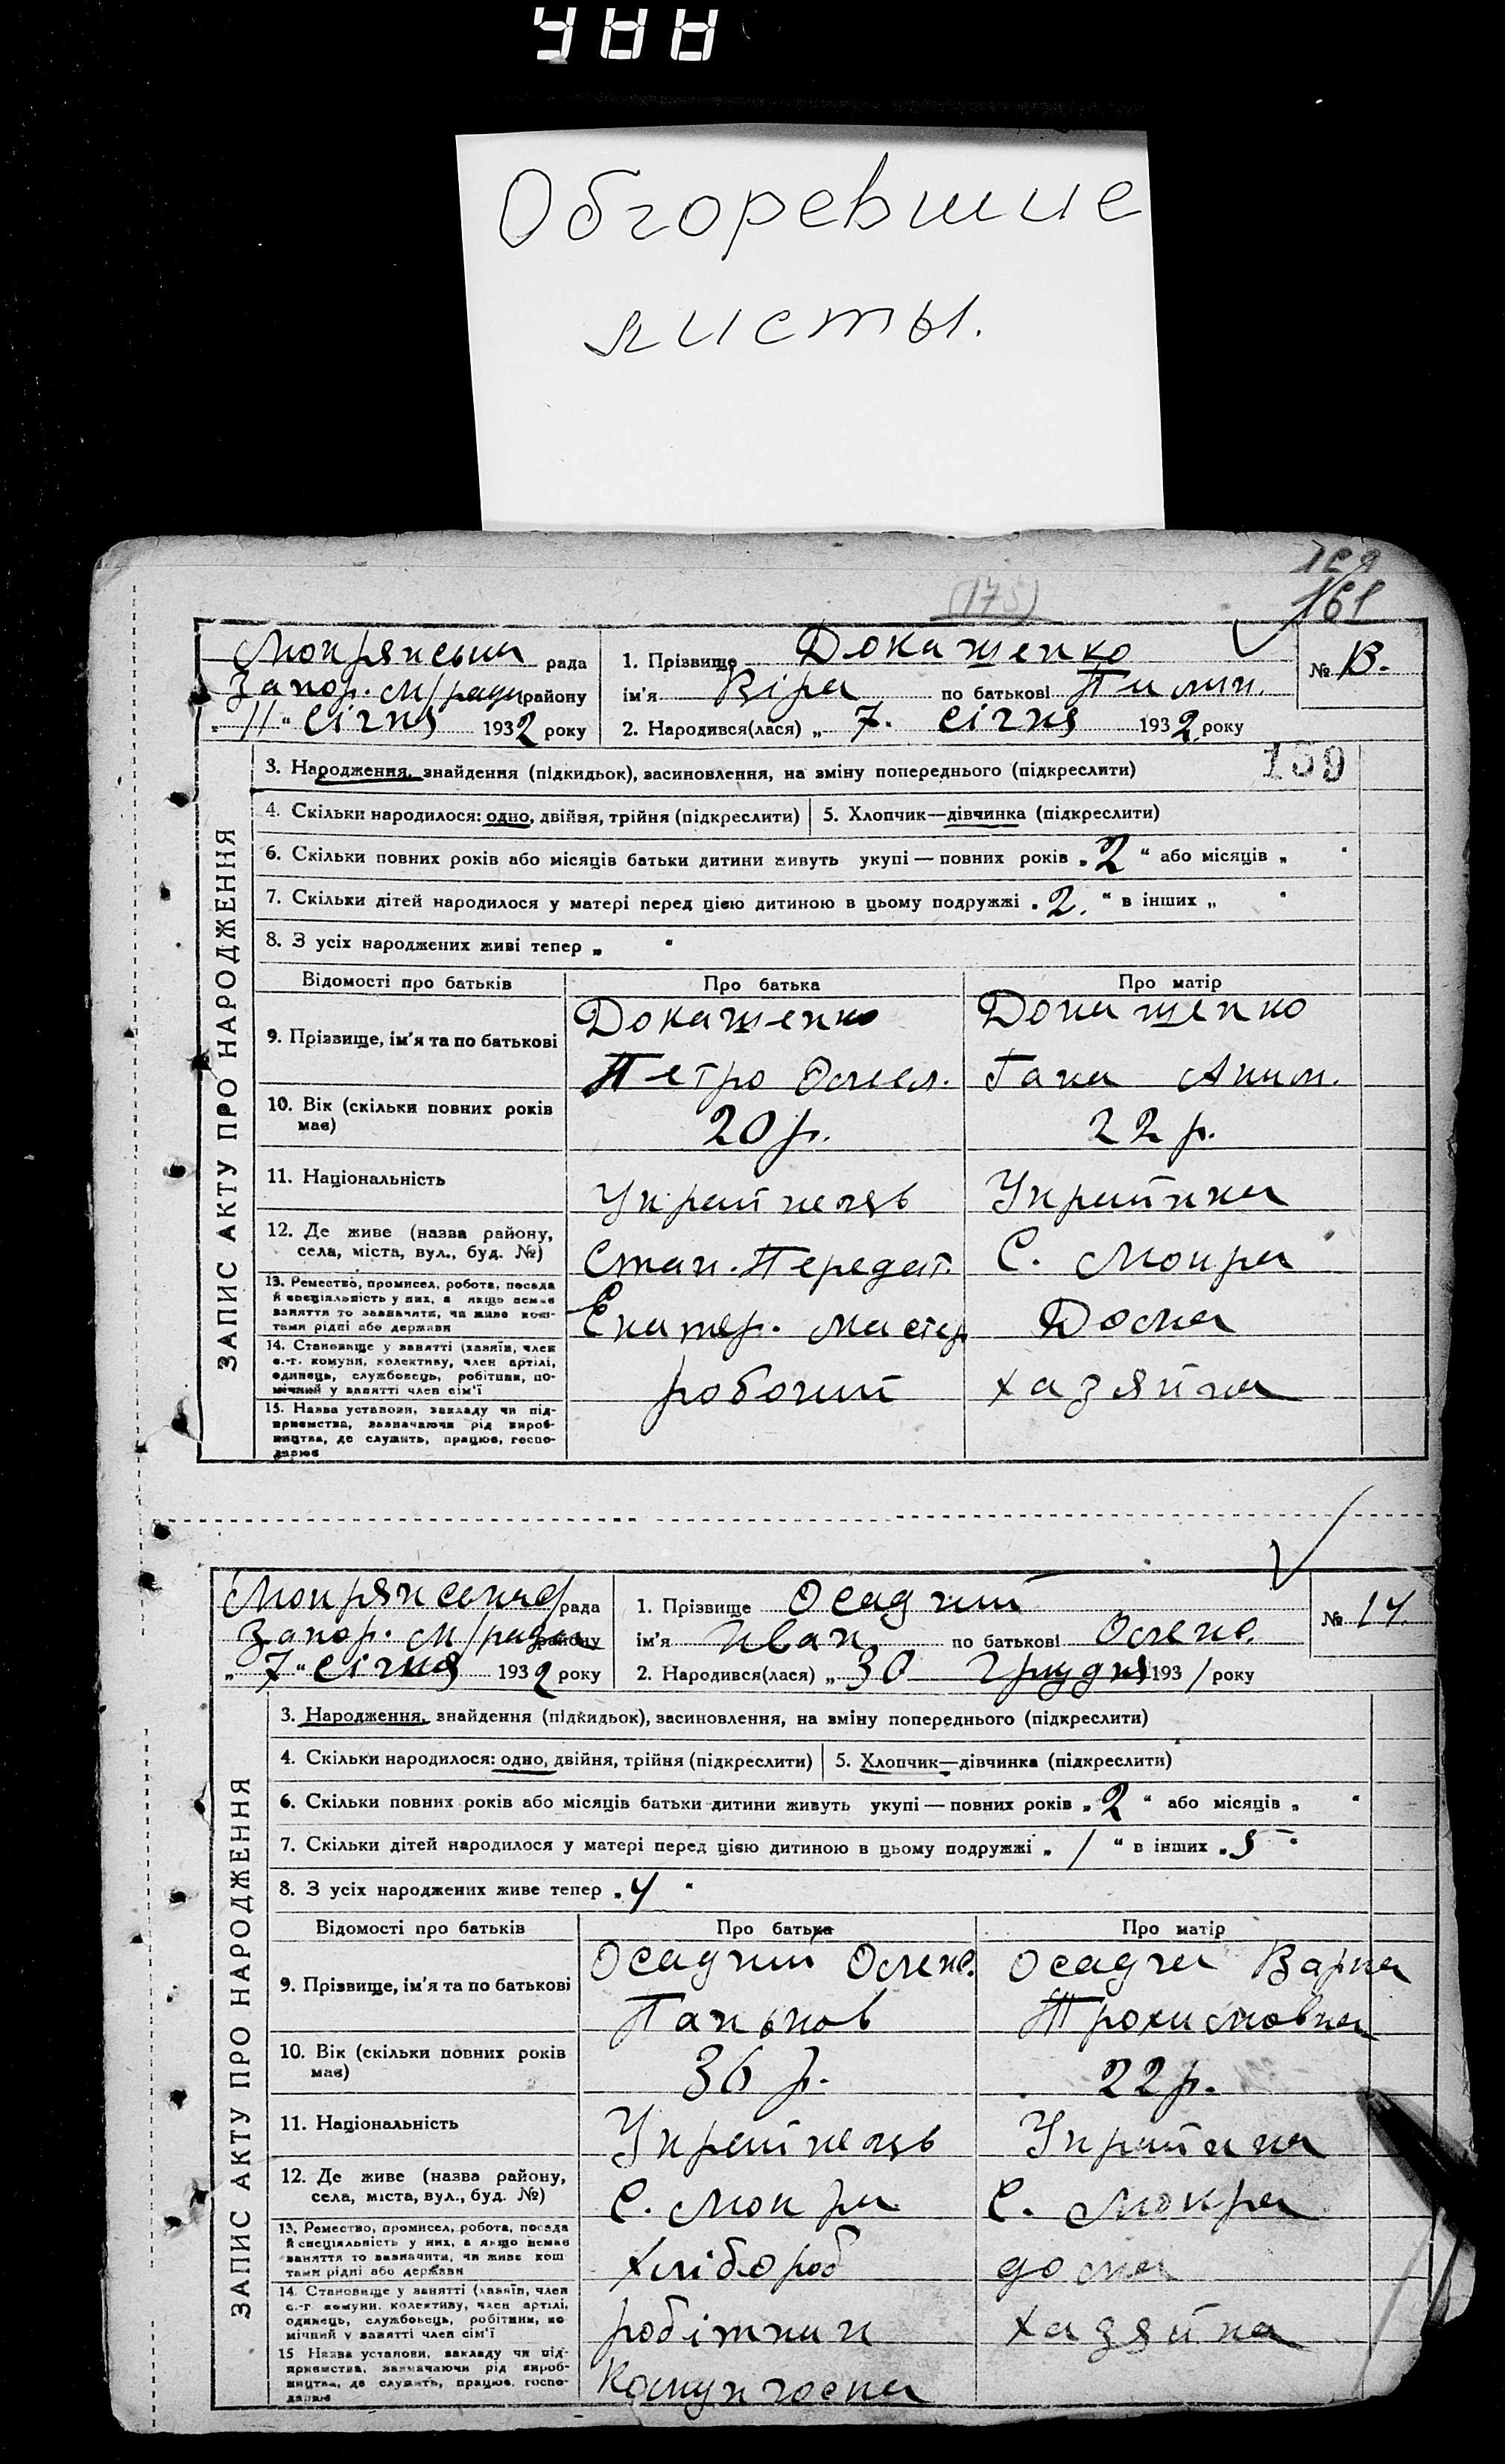 Обгоревшие
листы.
(175)
161
Мокрянська рада
Запор. м/ради району
„11“ січня 1932 року
1. Прізвище Докашенко
ім'я Віра по батькові
2. Народився(лася) „7. січня 1932 року
№ 13.
159
ЗАПИС АКТУ ПРО НАРОДЖЕННЯ
3. Народження, знайдення (підкидьок), засиновлення, на зміну попереднього (підкреслити)
4. Скільки народилося: одно, двійня, трійня (підкреслити) 5. Хлопчик—дівчинка (підкреслити)
6. Скільки повних років або місяців батьки дитини живуть укупі — повних років „2“ або місяців „ “
7. Скільки дітей народилося у матері перед цією дитиною в цьому подружжі „2.“ в інших „ “
8. З усіх народжених живі тепер „ “
Відомості про батьків Про батька Про матір
9. Прізвище, ім'я та по батькові
Докашенко Докашенко
Петро Гана Аким.
10. Вік (скільки повних років має) 20 р. 22 р.
11. Національність Украінець Украінка
12. Де живе (назва району, села, міста, вул., буд. №) Стан. Передат. С. Мокра
13. Ремество, промисел, робота, посада й спеціяльність у них, а якщо немає заняття то зазначити, чи живе коштами рідні або держави
Екатер. мастер Дома
14. Становище у занятті (хазяїн, член с.-г. комуни, колективу, член артілі, одинець, службовець, робітник, помічний у занятті член сім'ї
робочий хазяйка
15. Назва установи, закладу чи підприємства, зазначаючи рід виробництва, де служить, працює, господарює
Мокрянська рада
Запор. м/ради району
„7“ січня 1932 року
1. Прізвище Осадчий
ім'я Иван по батькові
2. Народився(лася) „30 грудня 1931 року
№ 14.
ЗАПИС АКТУ ПРО НАРОДЖЕННЯ
3. Народження, знайдення (підкидьок), засиновлення, на зміну попереднього (підкреслити)
4. Скільки народилося: одно, двійня, трійня (підкреслити) 5. Хлопчик—дівчинка (підкреслити)
6. Скільки повних років або місяців батьки дитини живуть укупі — повних років „2“ або місяців „ “
7. Скільки дітей народилося у матері перед цією дитиною в цьому подружжі „1“ в інших „5“
8. З усіх народжених живе тепер „4“
Відомості про батьків Про батька Про матір
9. Прізвище, ім'я та по батькові
Осадчий Осадча Варка
Паньков Трохимовна
10. Вік (скільки повних років має) 36 р. 22 р.
11. Національність Украінець Украінка
12. Де живе (назва району, села, міста, вул., буд. №) С. Мокра С. Мокра
13. Ремество, промисел, робота, посада й спеціяльність у них, а якщо немає заняття то зазначити, чи живе коштами рідні або держави
Хлібороб дома
14. Становище у занятті (хазяїн, член с.-г. комуни, колективу, член артілі, одинець, службовець, робітник, помічний у занятті член сім'ї
робітник хазяйка
15 Назва установи, закладу чи підприємства, зазначаючи рід виробництва, де служить, працює, господарює